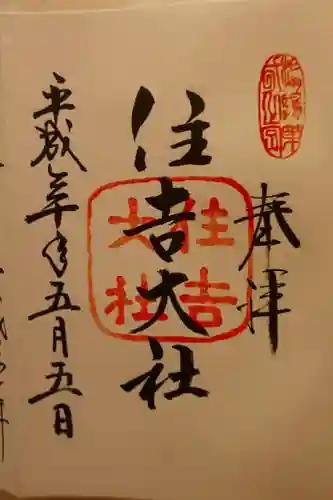 奉拝
住吉大社
住吉
大社
平成 年 五月五日